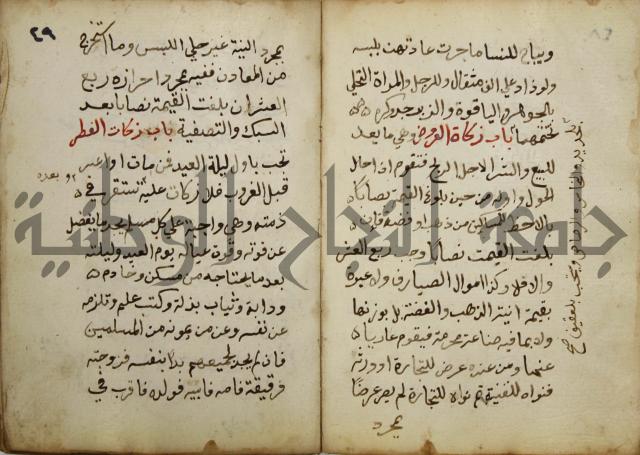 ويباح للنسا ما جرت عادتهن بلبسه
ولو زاد على الف مثقال وللرجل والمراة التحلي
بالجوهر والياقوة والزبرجد وكره
تختمهما باب زكاة العروض وهي ما يعد
للبيع والشرا لاجل الربح فتقوم اذا حال
الحول واوله من حين بلوغ القيمة نصابا
بالاحظ للمساكين من ذهب او فضة فان
بلغت القيمة نصابا وجب ربع العشر
والا فلا وكذا اموال الصيارف ولا عبرة
بقيمة انية الذهب والفضة بل بوزنها
ولا بما فيه صناعة محرمة فيقوم عاريا
عنها ومن عنده عرض للتجارة او ورثه
فنواه للقنية ثم نواه للتجارة لم يصر عرضا
بمجرد
٢٩
بمجرد النية غير حلي اللبس وما استخرج
من المعادن ففيه بمجرد احرازه ربع
العشر ان بلغت القيمة نصابا بعد
السبك والتصفية باب زكات الفطر
تجب باول ليلة العيد فمن مات او اعسر
قبل الغروب فلا زكات عليه وبعده تستقر في
ذمته وهي واجبة على كل مسلم يجد ما يفضل
عن قوته وقوت عياله يوم العيد وليلته
بعد ما يحتاجه من مسكن وخادم
ودابة وثياب بذلة وكتب علم وتلزمه
عن نفسه وعن من يمونه من المسلمين
فان لم يجد لجميعهم بدا بنفسه فزوجته
فرقيقه فامه فابيه فولده فاقرب في
جامعة النجاح الوطنية